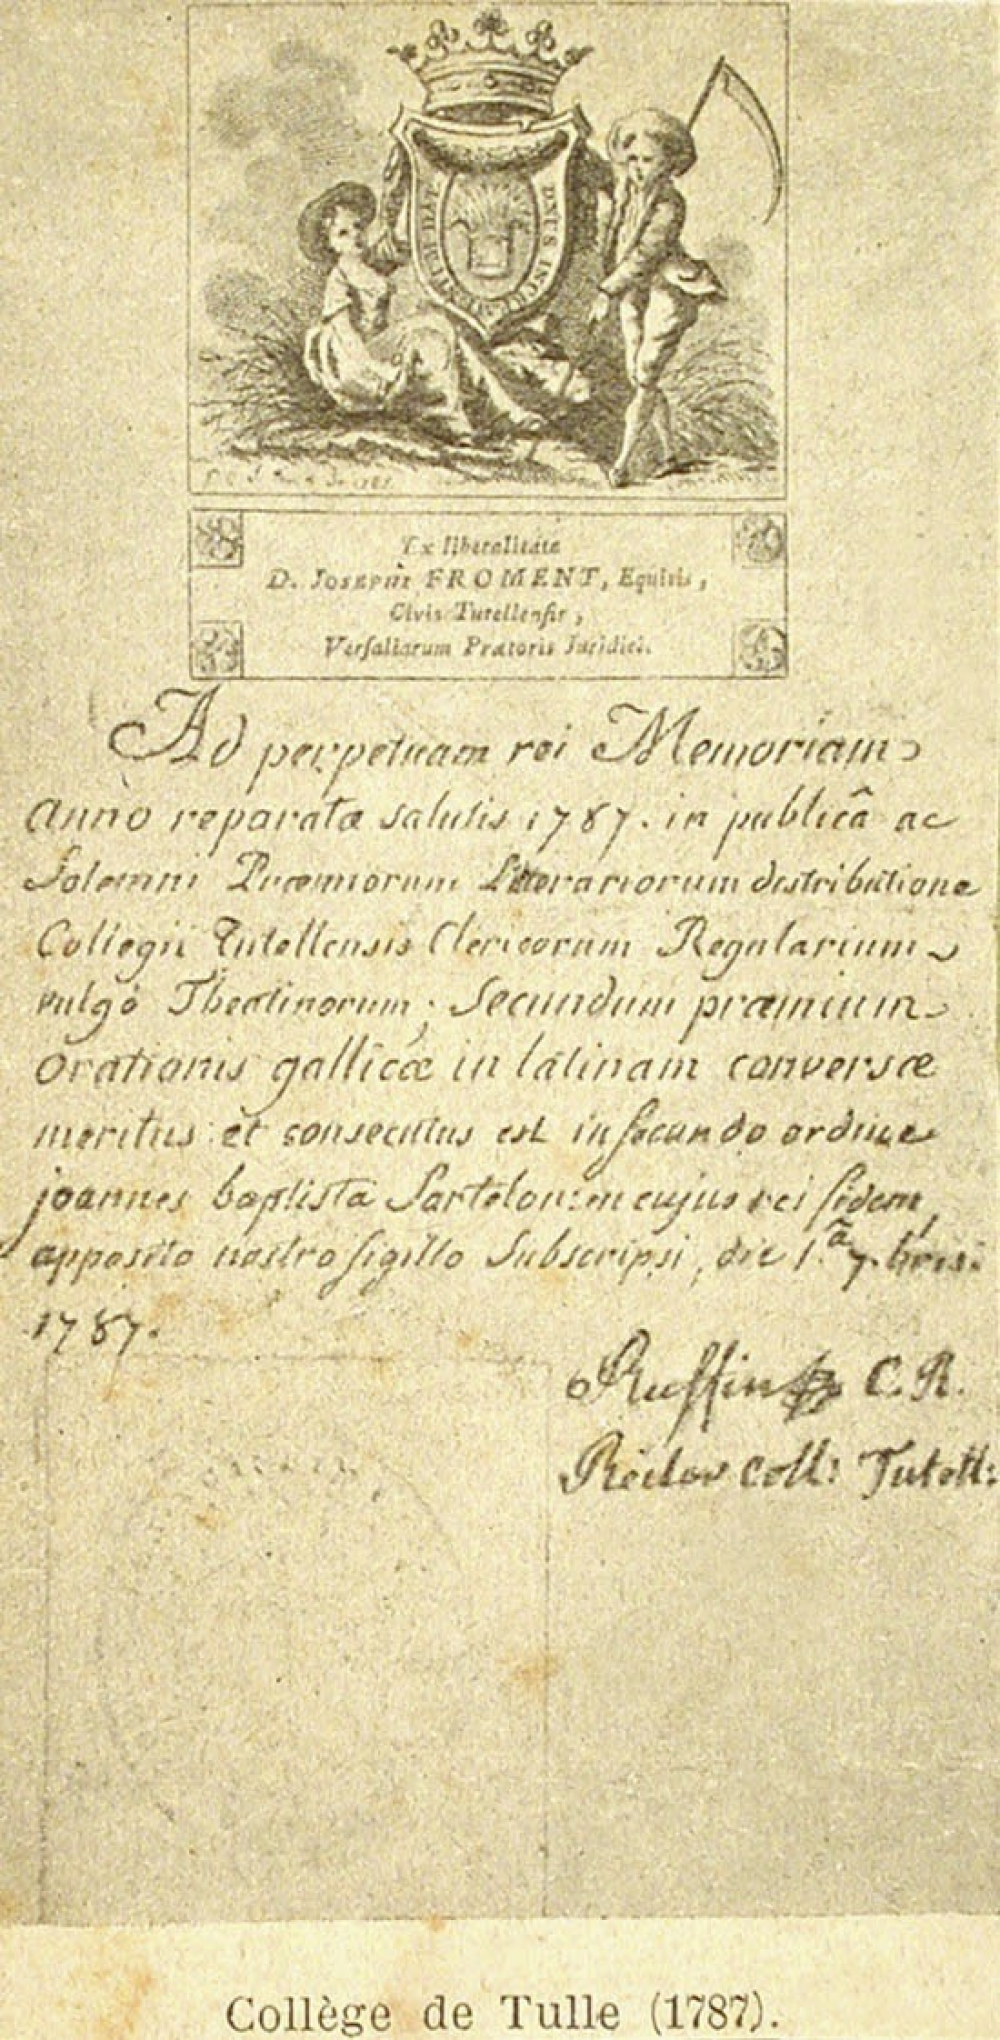 Ex liberalitate
D. Josephi FROMENT, Equitis,
Civis Tutellensis,
Versaliarum Prætoris Juridici.
Ad perpetuam rei Memoriam
anno reparatæ salutis 1787. in publicâ ac
Solemni Præmiorum Litterariorum distributione
Collegii Tutellensis Clericorum Regularium
vulgò Theatinorum; Secundum præmium
orationis gallicæ in latinam conversæ
meritus et consecutus est in secundo ordine
joannes baptista Sartelon: in cujus rei fidem,
apposito nostro sigillo Subscripsi, die 1.ª 7.bris.
1787.
Ruffin C. R.
Rector Coll: Tutell:
Collège de Tulle (1787).